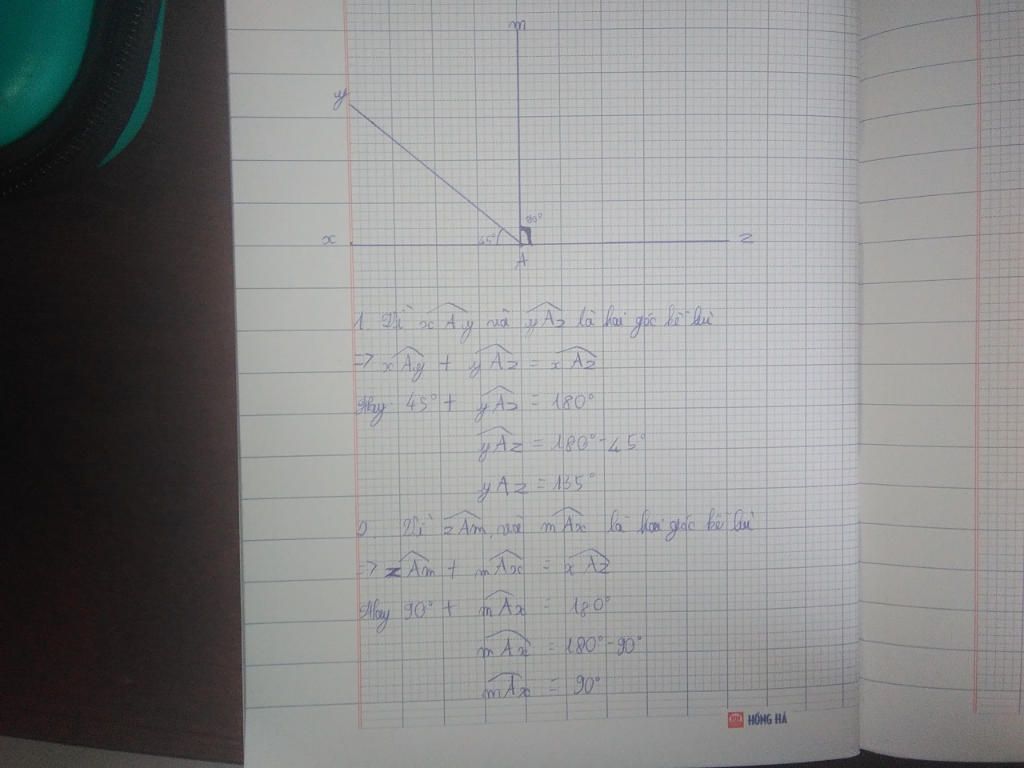 m
y
90°
x
45°
z
A
1. Vì xAy và yAz là hai góc kề bù
=> xAy + yAz = xAz
Hay 45° + yAz = 180°
yAz = 180° - 45°
yAz = 135°
2. Vì zAm và mAx là hai góc kề bù
=> zAm + mAx = xAz
Hay 90° + mAx = 180°
mAx = 180° - 90°
mAx = 90°
HỒNG HÀ